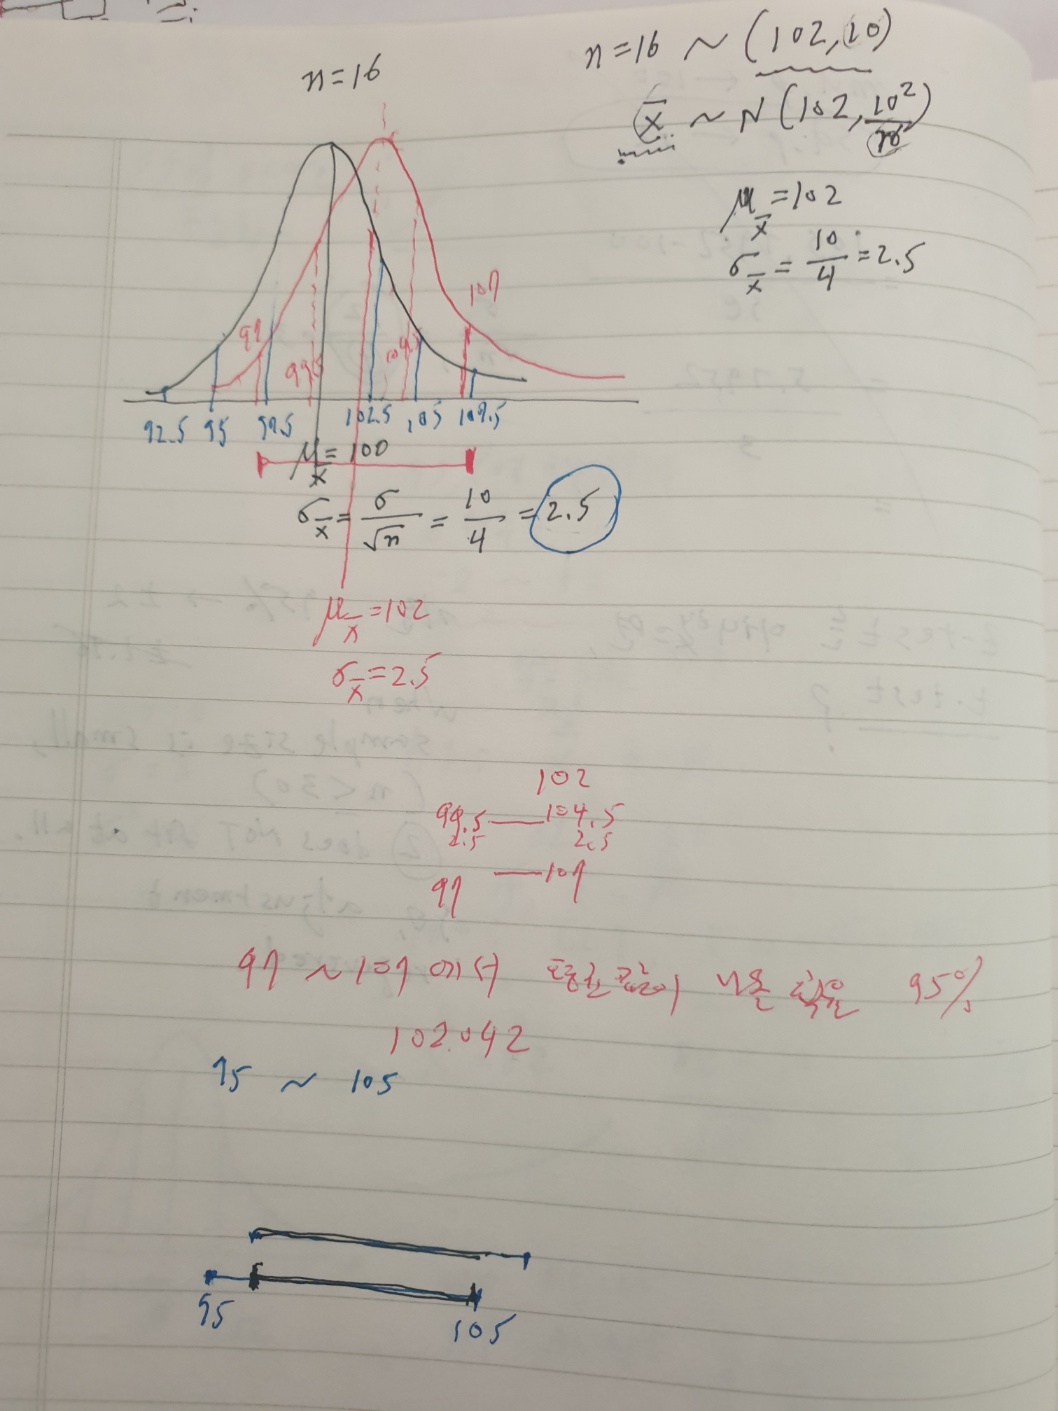 n=16 ~ (102,10)
n=16
x̄ ~ N(102, 10²/n)
μx̄ = 102
σx̄ = 10/4 = 2.5
107
97
99.5
104.5
92.5 95 99.5 102.5 105 109.5
μx̄ = 100
σx̄ = σ/√n = 10/4 = 2.5
μx̄ = 102
σx̄ = 2.5
102
99.5 — 104.5
2.5 2.5
97 — 107
97 ~ 107 에서 평균값이 나올 확률은 95%
102.042
95 ~ 105
95 105